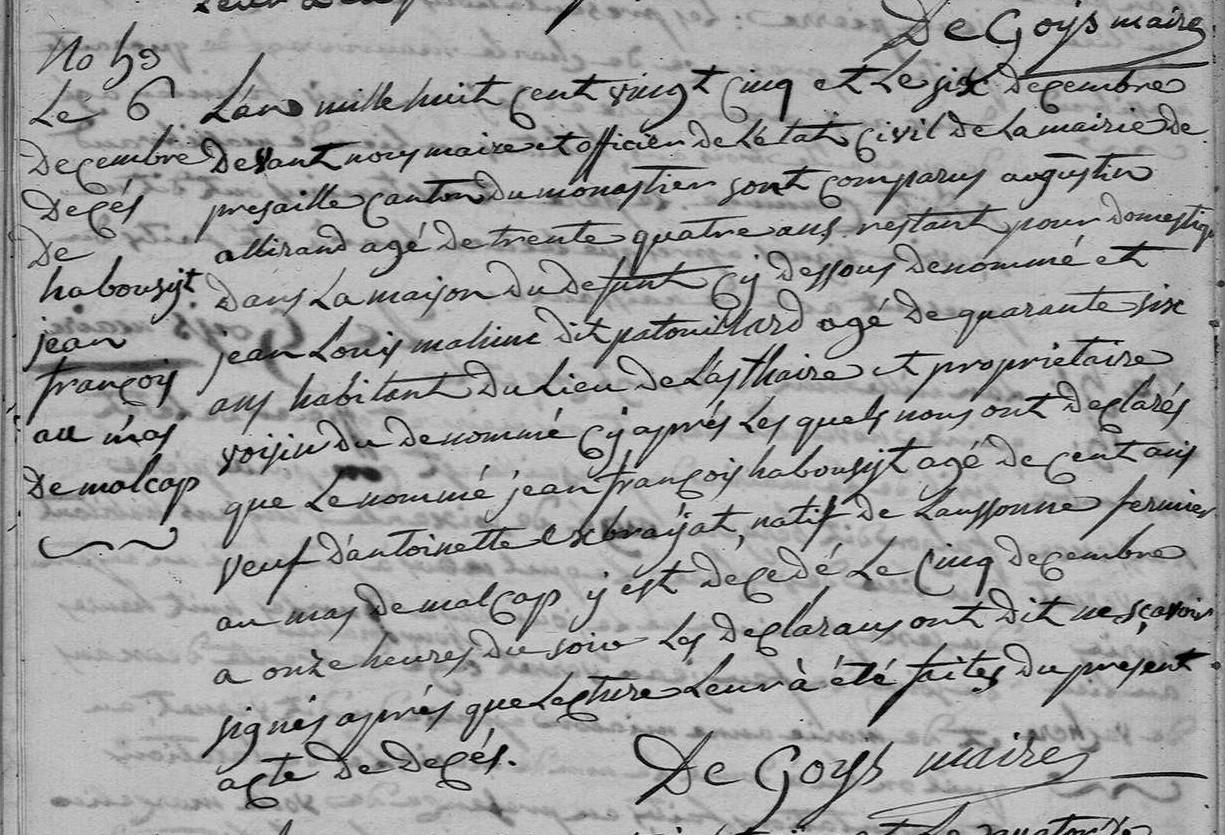 De Goys maire
No 59
Le 6
Decembre
Decés
De
habouzit
jean
françois
au mas
De malcap
L'an mille huit cent vingt cinq et Le six Decembre
Devant nous maire et officier de L'état civil de La mairie de
presaille canton du monastier sont comparus augustin
allirand agé de trente quatre ans restant pour domestique
dans La maison du defunt cy dessous denommé et
jean Louis mahinc dit patouillard agé de quarante six
ans habitant du Lieu de Lasthaire et proprietaire
voisin du denommé cy après Les quels nous ont declarés
que Le nommé jean françois habouzit agé de cent ans
veuf d'antoinette exbrayat, natif de Laussonne fermier
au mas de malcap y est decedé Le cinq decembre
a onze heures du soir Les declarans ont dit ne sçavoir
signés après que Lecture Leur à été faites du present
acte de decés.
De Goys maire